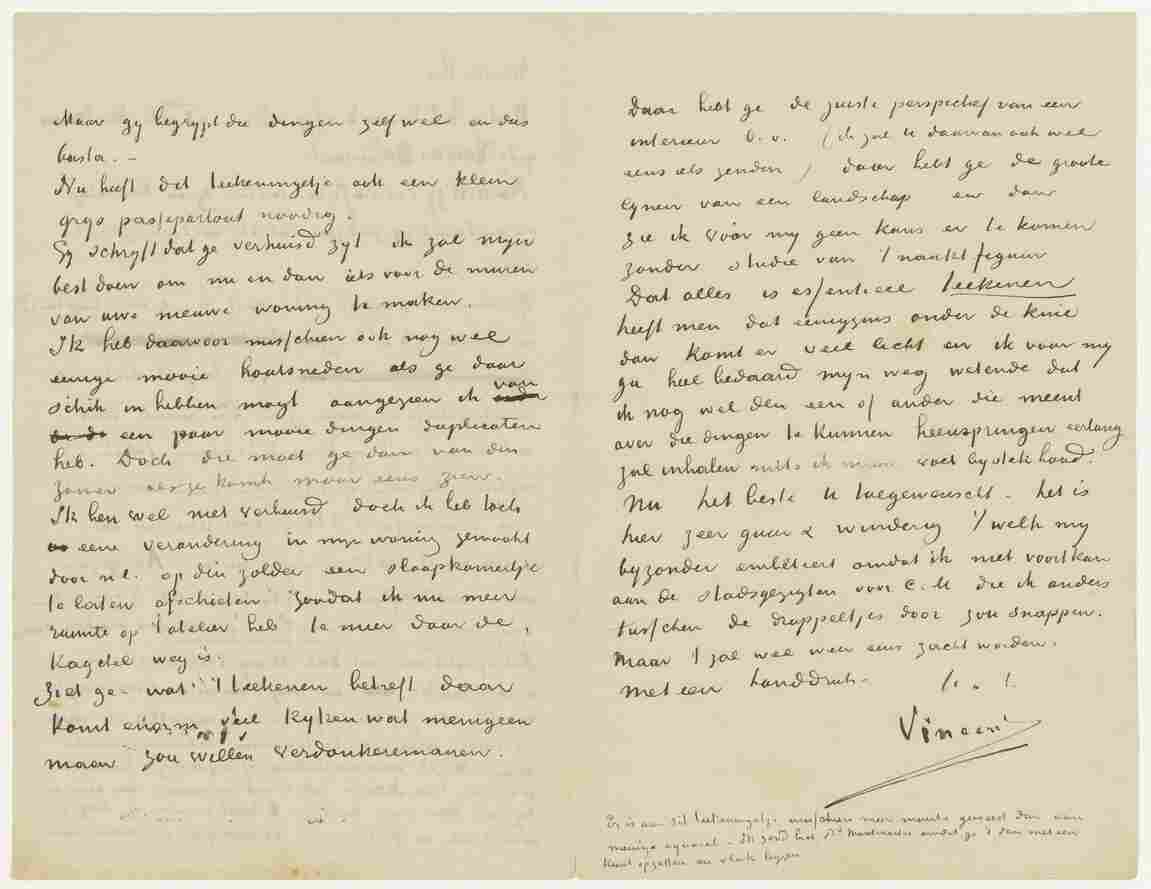 Maar gy begrypt die dingen zelf wel en dus
basta. –
Nu heeft dit teekeningetje ook een klein
grys passepartout noodig.
Gy schryft dat ge verhuisd zyt ik zal myn
best doen om nu en dan iets voor de muren
van uwe nieuwe woning te maken.
Ik heb daarvoor misschien ook nog wel
eenige mooie houtsneden als ge daar
schik in hebben mogt aangezien ik van
een paar mooie dingen duplicaten
heb. Doch die moet ge dan van den
zomer als ge komt maar eens zien.
Ik ben wel niet verhuisd doch ik heb toch
eene verandering in myn woning gemaakt
door n.l. op den zolder een slaapkamertje
te laten afschieten zoodat ik nu meer
ruimte op 't atelier heb te meer daar de
kagchel weg is.
Ziet ge – wat 't teekenen betreft daar
komt enorm veel kyken wat menigeen
maar zou willen verdonkeremanen.
Daar hebt ge de juiste perspectief van een
interieur b.v. (ik zal U daarvan ook wel
eens iets zenden) daar hebt ge de groote
lynen van een landschap en dan
zie ik voor my geen kans er te komen
zonder studie van 't naakt figuur
Dat alles is essentieel teekenen
heeft men dat eenigzins onder de knie
dan komt er veel licht en ik voor my
ga heel bedaard myn weg wetende dat
ik nog wel den een of ander die meent
over die dingen te kunnen heenspringen eerlang
zal inhalen mits ik maar voet by stek houd.
Nu het beste U toegewenscht – het is
hier zeer guur & winderig 't welk my
byzonder embêteert omdat ik niet voort kan
aan de stadsgezigten voor C.M. die ik anders
tusschen de droppeltjes door zou snappen.
Maar 't zal wel weer eens zacht worden.
Met een handdruk. t. à. t.
Vincent
Er is aan dit teekeningetje misschien meer moeite geweest dan aan
menige aquarel –
kunt opzetten en vlak krygen